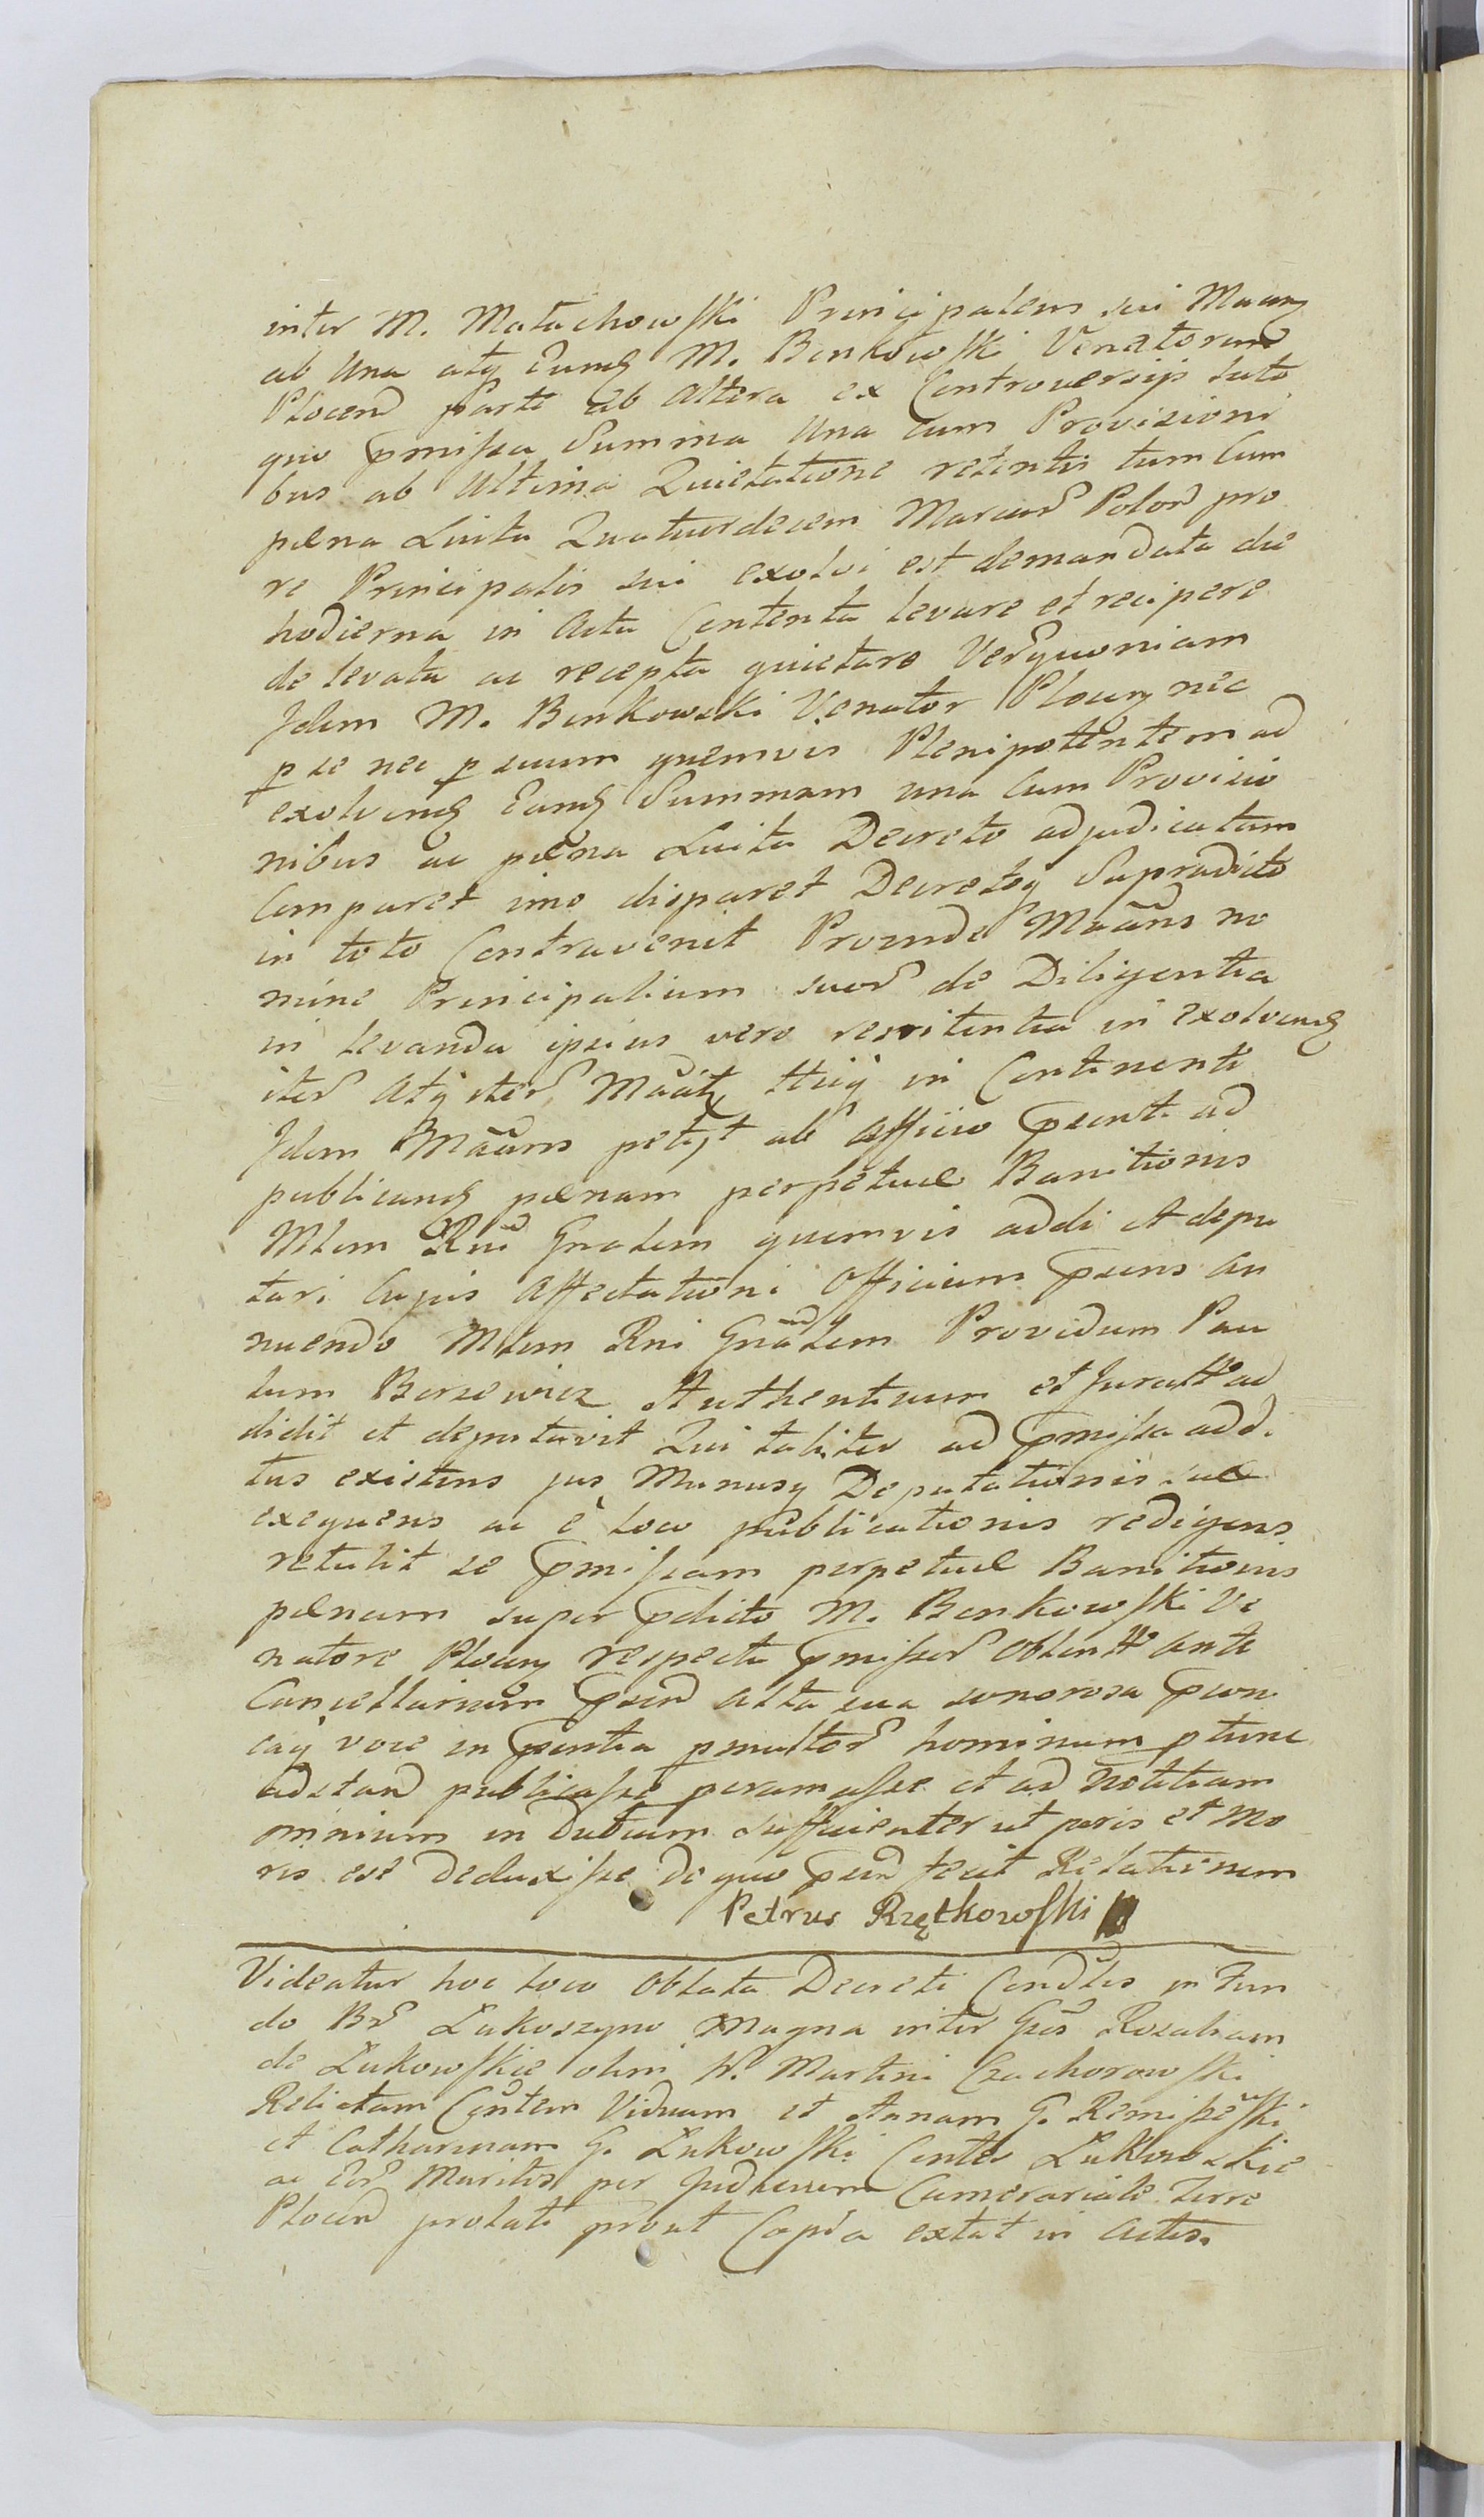 inter M. Małachowski Principalem sui Maang
ab Una atq Eund M. Benkowski Venatorem
Plocen Parte ab Altera ex Controversijs lato
quo pmissa Summa Una cum Provisioni
bus ab Ultima Quietatione retentis tum Cum
pæna Luita Quatuordecem Marcar Polon pro
re Principalis sui exolvi est demandata die
hodierna in Acta Contenta levare et recipere
de levata ac recepta quietare Verq quoniam
Idem M. Benkowski Venator Plocen nec
p se nec p suum quemvis Plenipotentem ad
exolvend Eand Summam una Cum Provisio
nibus ac pæna Luita Decreto adjudicatam
Comparet imo disparet Decretoq Supradicto
in toto Contravenit Proinde Maans no
mine Principalium suor de Diligentia
in levanda ipsius vero renitentia in exolvend
iter Atq iter
Idem Maans petijt ab Officio psenti ad
publicand pænam perpetuæ Banitionis
Mlem Rni Gnalem quemvis addi et depu
tari Cujus Affectationi Officium psens an
nuendo Mlem Rni Gnalem Providum Pau
lum Borzewicz Authenticum et Juratt ad
didit et deputavit Qui taliter ad pmissa addi
tus existens jus Munusq Deputationis suæ
exequens ac e loco publicationis rediens
retulit se pmissam perpetuæ Banitionis
pænam super pdicto M. Benkowski Ve
natore Plocen respectu pmissor obtent ante
Cancellariam psen alta sua sonorosa pcon
caq voce in psentia pmultor hominum ptunc
adstan publicasse pclamasse et ad Notitiam
omnium in dubium sufficienter ut juris et Mo
ris est deduxisse de quo psen fecit Relationem
Petrus Rzętkowski
Videatur hoc loco Oblata Decreti Condtis in Fun
do Br Łukoszyno Magna inter Gsos Rosaliam
de Łukowskie olim N. Martini Czachorowski
Relictam Csntem Viduam et Annam G. Remiszewski
et Catharinam G. Łukowski Contes Łukowskie
ac Eor Maritos per Judicium Camerariale Terre
Plocen prolati prout Copia extat in Actis.